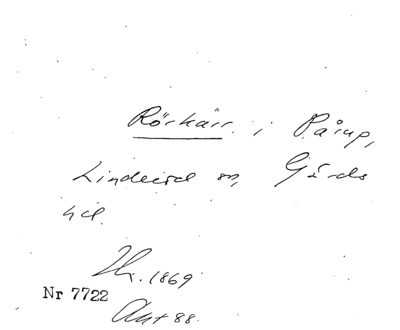 Rörkärr i Pårup,
Linderöd sn, Gärds
hd.
1869
Nr 7722
Akt 88.